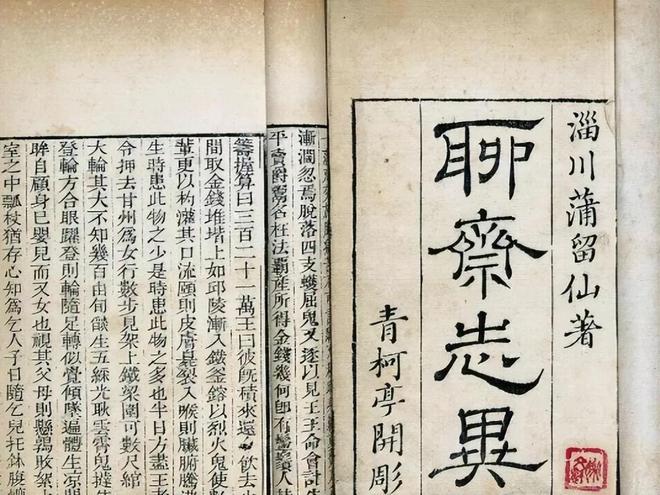 淄川蒲留仙著
聊齋志異
青柯亭開彫
漸闊忽焉脫落四支蠖屈鬼又逐以見王王命會計生
平賣爵鬻名枉法霸產所得金錢幾何卽有鬚人持
籌握算曰三百二十一萬王曰彼旣積來還飲去少
間取金錢堆堦上如邱陵漸入鐵釜鎔以烈火鬼使數
輩更以杓灌其口流頤則皮膚臭裂入喉則臟腑騰
生時患此物之少是時患此物之多也半日方盡王者
令押去甘州爲女行數步見架上鐵梁圍可數尺綰
大輪其大不知幾百由旬燄生五綵光耿雲霄鬼撻使
登輪方合眼躍登則輪隨足轉似覺傾墜遍體生凉開
眸自顧身已嬰兒而又女也視其父母則懸鶉敗絮土
室之中瓢杖猶存心知爲乞人子日隨乞兒托鉢腹轆